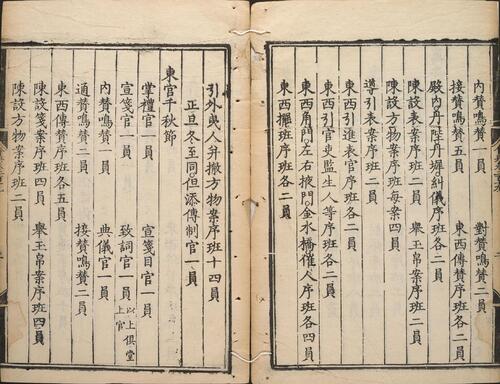 內贊鳴贊二員　對贊鳴贊二員
接贊鳴贊五員　東西傳贊序班各二員
殿內丹陛丹墀糾儀序班各二員
陳設表案序班二員　舉玉帛案序班二員
陳設方物案序班每案四員
導引表案序班二員
東西引進表官序班各二員
東西引官吏監生人等序班各二員
東西角門左右掖門金水橋催人序班各四員
東西擺班序班各二員
引外夷人并撤方物案序班十四員
正旦冬至同但添傳制官一員
東宫千秋節
掌禮官一員　宣箋目官一員
宣箋官一員　致詞官一員以上俱堂上官
內贊鳴贊一員　典儀官一員
通贊鳴贊二員　接贊鳴贊二員
東西傳贊序班各五員
陳設箋案序班四員　舉玉帛案序班四員
陳設方物案序班二員